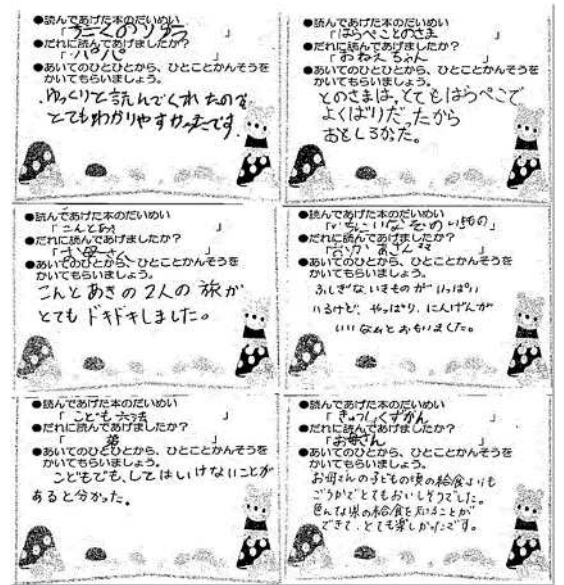 ●読んであげた本のだいめい
「 」
●だれに読んであげましたか？
「パパ」
●あいてのひとから、ひとことかんそうを
かいてもらいましょう。
ゆっくりと読んでくれたので
とてもわかりやすかったです。
●読んであげた本のだいめい
「はらぺことのさま」
●だれに読んであげましたか？
「おねえちゃん」
●あいてのひとから、ひとことかんそうを
かいてもらいましょう。
とのさまは、とてもはらぺこで
よくばりだったから
おもしろかた。
●読んであげた本のだいめい
「こんとあき」
●だれに読んであげましたか？
「お母さん」
●あいてのひとから、ひとことかんそうを
かいてもらいましょう。
こんとあきの2人の旅が
とてもドキドキしました。
●読んであげた本のだいめい
「 いきもの」
●だれに読んであげましたか？
「おかあさん」
●あいてのひとから、ひとことかんそうを
かいてもらいましょう。
ふしぎないきものがいっぱい
いるけど、やっぱり、にんげんが
いいなぁとおもいました。
●読んであげた本のだいめい
「こども六法」
●だれに読んであげましたか？
「弟」
●あいてのひとから、ひとことかんそうを
かいてもらいましょう。
こどもでも、してはいけないことが
あると分かった。
●読んであげた本のだいめい
「きゅうしょくずかん」
●だれに読んであげましたか？
「お母さん」
●あいてのひとから、ひとことかんそうを
かいてもらいましょう。
お母さんの子どもの頃の給食よりも
ごうかでとてもおいしそうでした。
色んな県の給食を知ることが
できて、とても楽しかったです。